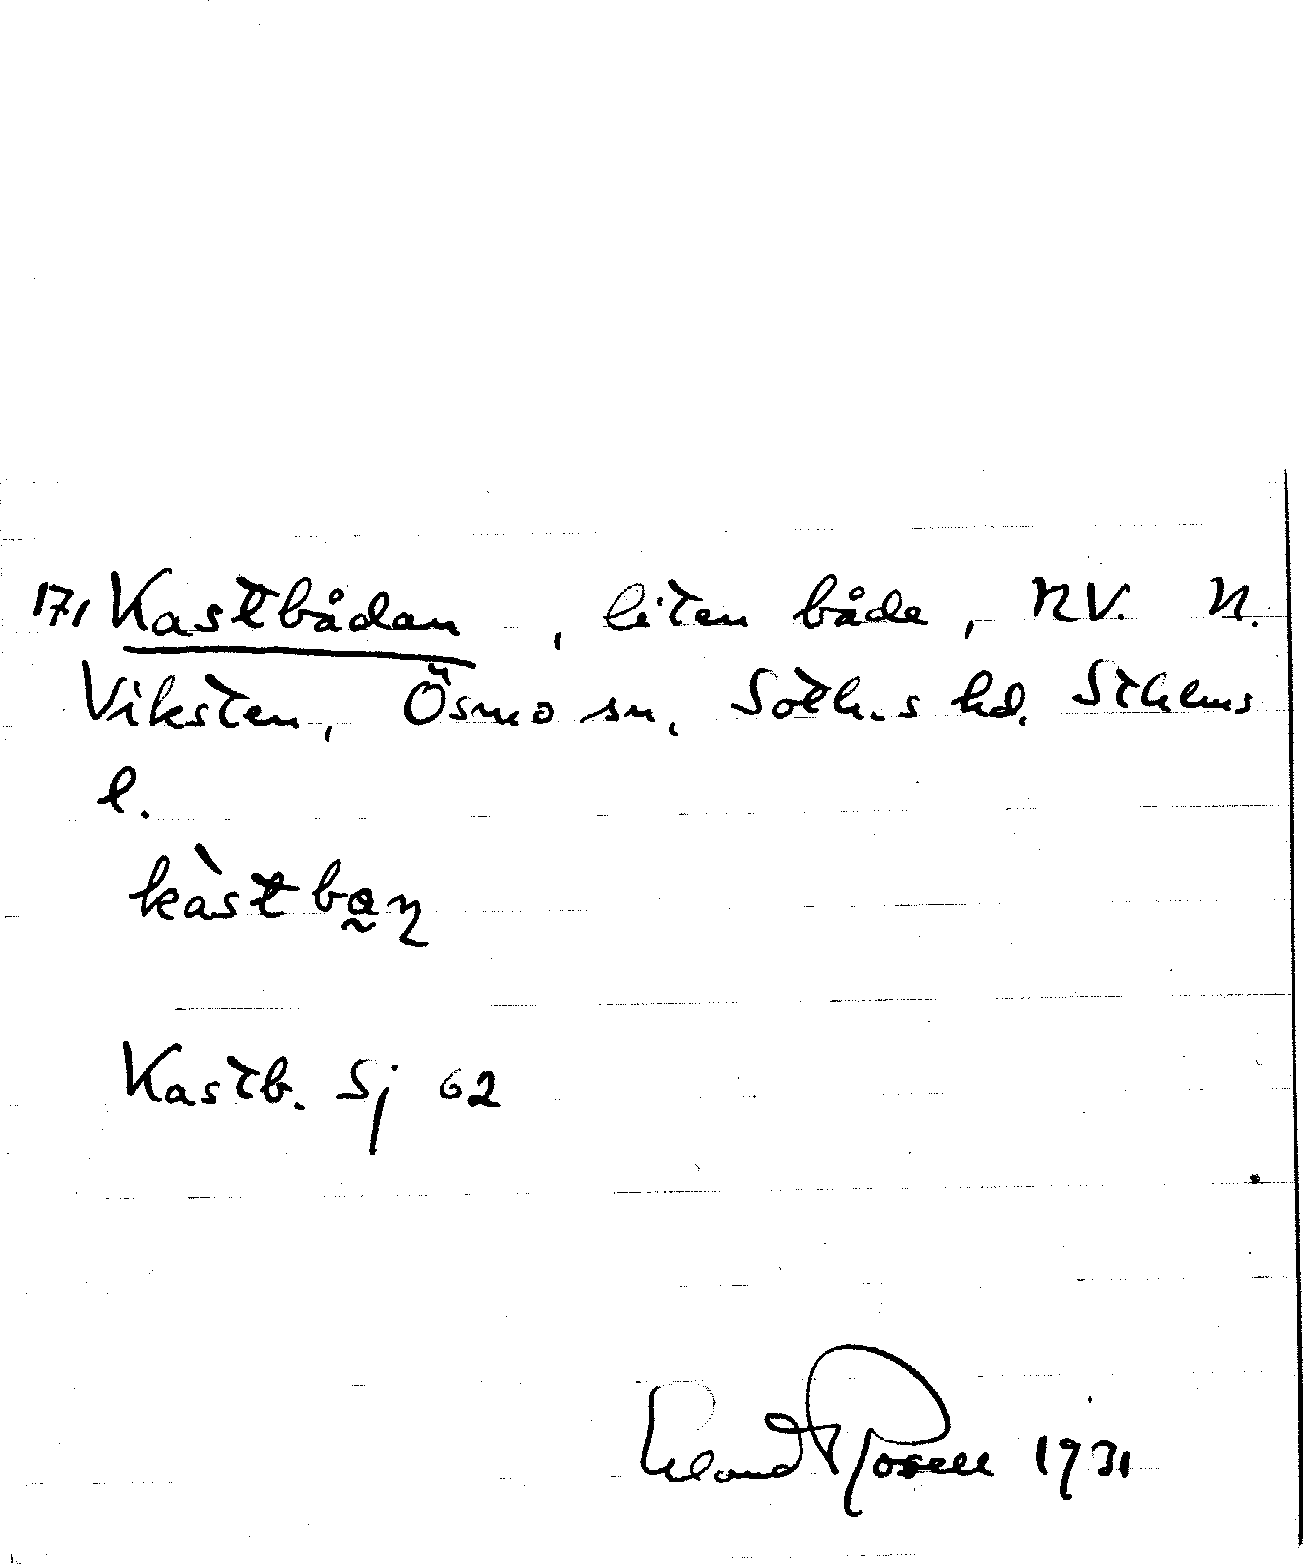 171 Kastbådan, liten både, NV. N.
Viksten, Ösmo sn, Soth.s hd. Sthlms
l.
kàstban
Kastb. Sj 62
Erland Rosell 1931